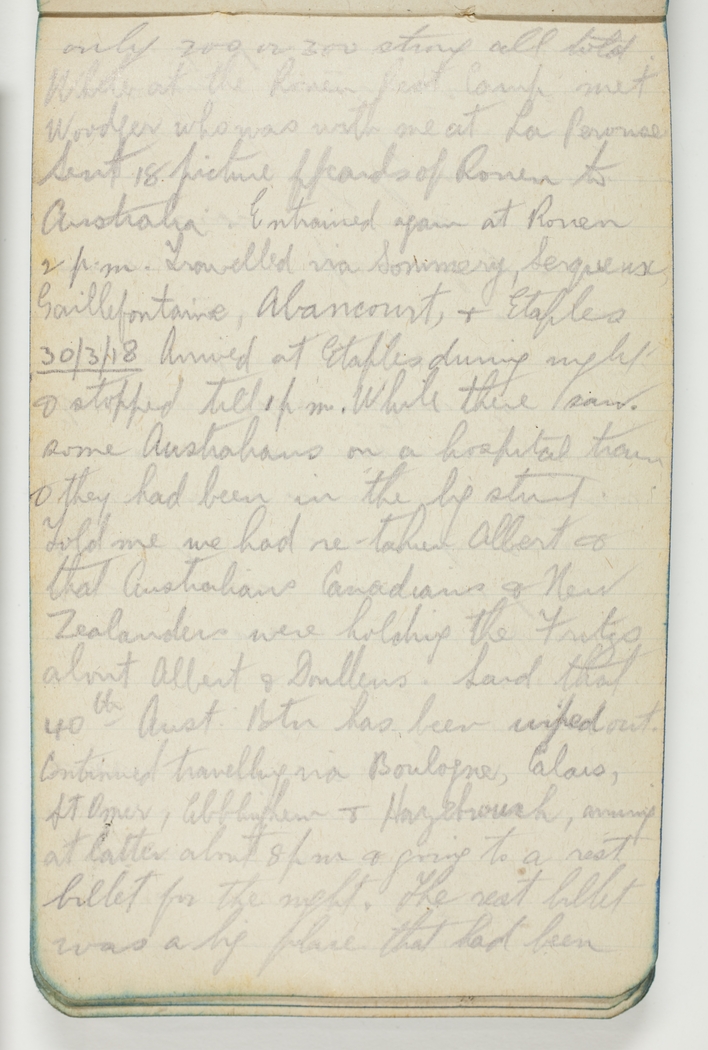 only 200 or 300 strong all told
While at the Rouen Rest Camp met
Woodger who was with me at La Perouse
Sent 18 picture ppcards of Rouen to
Australia. Entrained again at Rouen
2 p.m. Travelled via Sommery, Serqueux,
Gaillefontaine, Abancourt, & Etaples
30/3/18 Arrived at Etaples during night
& stopped till 1 p.m. While there saw
some Australians on a hospital train
& they had been in the big stunt.
Told me we had re-taken Albert &
that Australians Canadians & New
Zealanders were holding the Fritzs
about Albert & Doullens. Said that
40th Aust. Btn has been wiped out.
Continued travelling via Boulogne, Calais,
St Omer, Ebblinghem & Hazebrouck, arriving
at latter about 8 pm & going to a rest
billet for the night. The rest billet
was a big place that had been